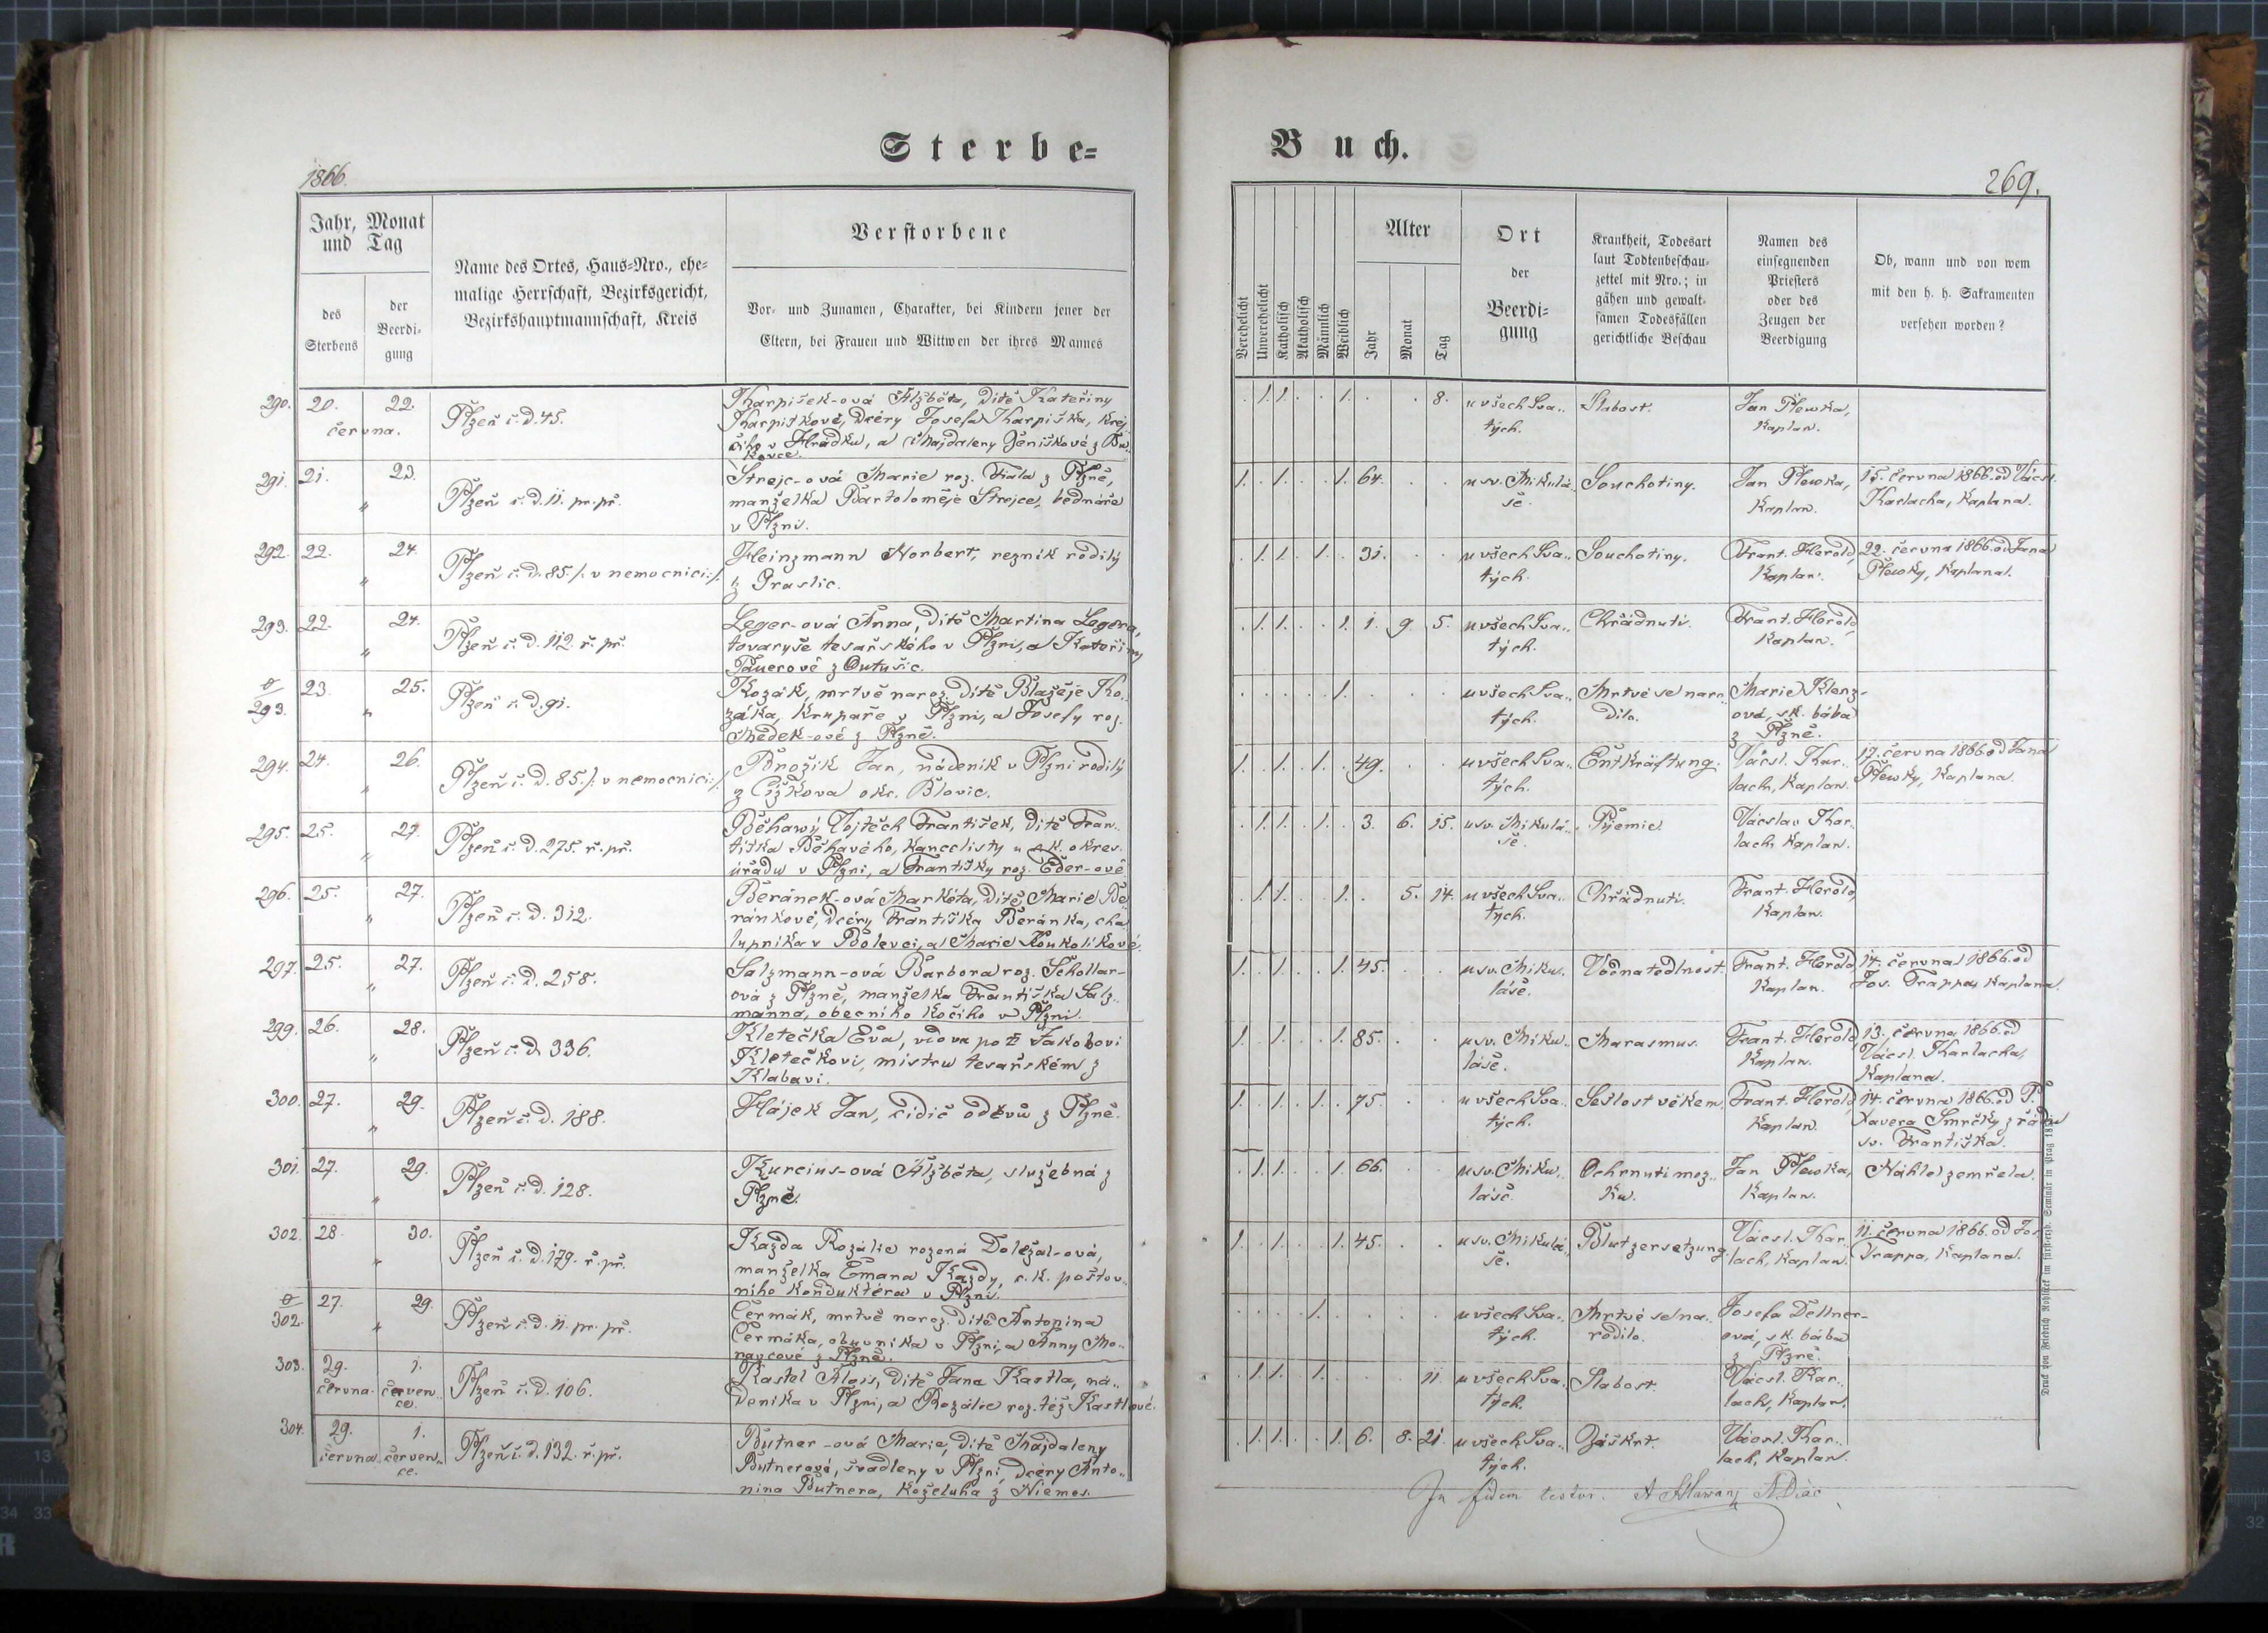 Sterbe=
1866.
Jahr, Monat
und Tag
des
Sterbens
der
Beerdi-
gung
Name des Ortes, Haus=Nro., ehe=
malige Herrschaft, Bezirksgericht,
Bezirkshauptmannschaft, Kreis
Verstorbene
Vor- und Zunamen, Charakter, bei Kindern jener der
Eltern, bei Frauen und Wittwen der ihres Mannes
290. 20. 22.
června.
Plzeň č.d. 45.
Karpišek-ová Alžběta, dítě Kateřiny
Karpiškové, dcery Josefa Karpiška, krej-
čího v Hrádku, a Majdaleny Ženiškové z Bu-
kovce.
291. 21. 23.
"
Plzeň č.d. 11. pr. př.
Strejc-ová Marie roz. Fiala z Plzně,
manželka Bartoloměje Strejce, bednáře
v Plzni.
292. 22. 24.
"
Plzeň č.d. 85 /: v nemocnici :/
Heinzmann Norbert, řezník rodilý
z Graslic.
293. 22. 24.
"
Plzeň č.d. 112. ř. př.
Leger-ová Anna, dítě Martina Legera,
tovaryše tesařského v Plzni, a Kateřiny
Pauerové z Outušic.
293. 23. 25.
"
Plzeň č.d. 91.
Kozák, mrtvě naroz. dítě Blažeje Ko-
záka, krupaře v Plzni, a Josefy roz.
Medek-ové z Plzně.
294. 24. 26.
"
Plzeň č.d. 85 /: v nemocnici :/
Brožík Jan, nádeník v Plzni rodilý
z Čížkova okr. Blovic.
295. 25. 27.
"
Plzeň č.d. 275. ř. př.
Běhawý Vojtěch František, dítě Fran-
tiška Běhavého, kancelisty u c.k. okres.
úřadu v Plzni, a Františky roz. Eder-ové
296. 25. 27.
"
Plzeň č.d. 312.
Beránek-ová Markéta, dítě Marie Be-
ránkové, dcery Františka Beránka, cha-
lupníka v Bolevci, a Marie Koukolíkové.
297. 25. 27.
"
Plzeň č.d. 258.
Salzmann-ová Barbora roz. Schollar-
ová z Plzně, manželka Františka Salz-
manna, obecního kočího v Plzni.
299. 26. 28.
"
Plzeň č.d. 336.
Kletečka Eva, vdova po Jakobovi
Kletečkovi, mistru tesařském z
Klabavi.
300. 27. 29.
"
Plzeň č.d. 188.
Hájek Jan, cídič oděvů z Plzně.
301. 27. 29.
"
Plzeň č.d. 128.
Kurcius-ová Alžběta, služebná z
Plzně.
302. 28. 30.
"
Plzeň č.d. 179. ř. př.
Kazda Rozálie rozená Doležal-ová,
manželka Emana Kazdy, c.k. poštov-
ního konduktéra v Plzni.
302. 27. 29.
"
Plzeň č.d. 11. pr. př.
Čermák, mrtvě naroz. dítě Antonína
Čermáka, obuvníka v Plzni, a Anny Mo-
ravcové z Plzně.
303. 29. 1.
června. červen-
ce.
Plzeň č.d. 106.
Kastel Alois, dítě Jana Kastla, ná-
deníka v Plzni, a Rozálie roz. též Kastlové.
304. 29. 1.
června červen-
ce.
Plzeň č.d. 132. ř. př.
Butner-ová Marie, dítě Majdaleny
Butnerové, švadleny v Plzni, dcery Anto-
nína Butnera, koželuha z Niemes.
Buch.
269.
Verehelicht
Unverehelicht
Katholisch
Akatholisch
Männlich
Weiblich
Alter
Jahr
Monat
Tag
Ort
der
Beerdi-
gung
Krankheit, Todesart
laut Todtenbeschau-
zettel mit Nro.; in
gähen und gewalt-
samen Todesfällen
gerichtliche Beschau
Namen des
einsegnenden
Priesters
oder des
Zeugen der
Beerdigung
Ob, wann und von wem
mit den h. h. Sakramenten
versehen worden?
. 1. 1. . . 1. . . 8.
u všech Sva-
tých.
Slabost.
Jan Plewka,
Kaplan.
1. . 1. . . 1. 64. . .
u sv. Mikulá-
še.
Souchotiny.
Jan Plewka,
Kaplan.
15. června 1866. od Václ.
Karlacha, Kaplana.
. 1. 1. . 1. . 31. . .
u všech Sva-
tých.
Souchotiny.
Frant. Herold,
Kaplan.
22. června 1866. od Jana
Plewky, Kaplana.
. 1. 1. . . 1. 1. 9. 5.
u všech Sva-
tých.
Chřadnutí.
Frant. Herold,
Kaplan.
. . . . . 1. . . .
u všech Sva-
tých.
Mrtvé se naro-
dilo.
Marie Klenz-
ová, sk. bába
z Plzně.
1. . 1. . 1. . 49. . .
u všech Sva-
tých.
Entkräftung.
Václ. Kar-
lach, Kaplan.
17. června 1866. od Jana
Plewky, Kaplana.
. 1. 1. . 1. . 3. 6. 15.
u sv. Mikulá-
še.
Pyemie.
Václav Kar-
lach Kaplan.
. 1. 1. . . 1. . 5. 14.
u všech Sva-
tých.
Chřadnutí.
Frant. Herold,
Kaplan.
1. . 1. . . 1. 45. . .
u sv. Miku-
láše.
Vodnatedlnost.
Frant. Herold,
Kaplan.
14. června 1866. od
Jos. Trappa, Kaplana.
1. . 1. . . 1. 85. . .
u sv. Miku-
láše.
Marasmus.
Frant. Herold,
Kaplan.
13. června 1866. od
Václ. Karlacha,
Kaplana.
1. . 1. . 1. . 75. . .
u všech Sva-
tých.
Sešlost věkem.
Frant. Herold,
Kaplan.
14. června 1866. od P.
Xavera Smrčky z řádu
sv. Františka.
. 1. 1. . . 1. 66. . .
u sv. Miku-
láše.
Ochrnutí moz-
ku.
Jan Plewka,
Kaplan.
Náhle zemřela.
1. . 1. . . 1. 45. . .
u sv. Mikulá-
še.
Blutzersetzung.
Václ. Kar-
lach, Kaplan.
11. června 1866. od Jos.
Trappa, Kaplana.
. . . . 1. . . . .
u všech Sva-
tých.
Mrtvé se na-
rodilo.
Josefa Dellner-
ová, sk. bába
z Plzně.
. 1. 1. . 1. . . . 11.
u všech Sva-
tých.
Slabost.
Václ. Kar-
lach, Kaplan.
. 1. 1. . . 1. 6. 8. 21.
u všech Sva-
tých.
Záškrt.
Václ. Kar-
lach, Kaplan.
In fidem testor.